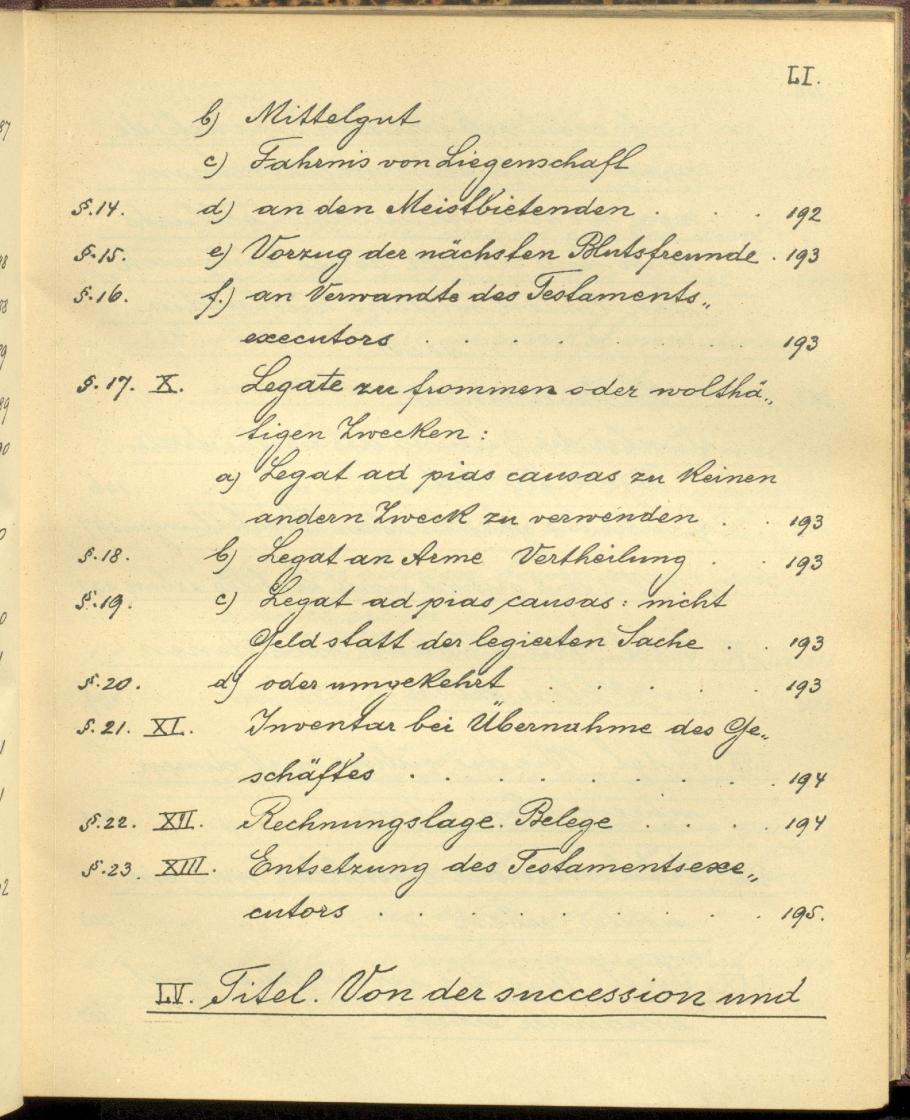 LI.
b) Mittelgut
c) Fahrnis von Liegenschaft
§.14. d) an den Meistbietenden . . . 192
§.15. e) Vorzug der nächsten Blutsfreunde . 193
§.16. f.) an Verwandte des Testaments„
executors . . . . . . . 193
§.17. X. Legate zu frommen oder wolthä„
tigen Zwecken :
a) Legat ad pias causas zu keinen
andern Zweck zu verwenden . . 193
§.18. b) Legat an Arme Vertheilung . . 193
§.19. c) Legat ad pias causas : nicht
Geld statt der legierten Sache . . 193
§.20. d) oder umgekehrt . . . . . 193
§.21. XI. Inventar bei Übernahme des Ge„
schäftes . . . . . . . 194
§.22. XII. Rechnungslage. Belege . . . . 194
§.23. XIII. Entsetzung des Testamentsexe„
cutors . . . . . . . . 195.
LV. Titel. Von der succession und